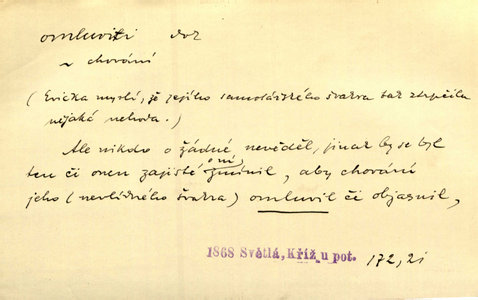 omluviti dok
~ chování
(Evička myslí, že jejího samotářského švakra tak ztrpčila
nějaká nehoda.)
Ale nikdo o žádné nevěděl, jinak by se byl
ten či onen zajisté o ní zmínil, aby chování
jeho (nevlídného švakra) omluvil či objasnil,
1868 Světlá, Kříž u pot. 172, 2i